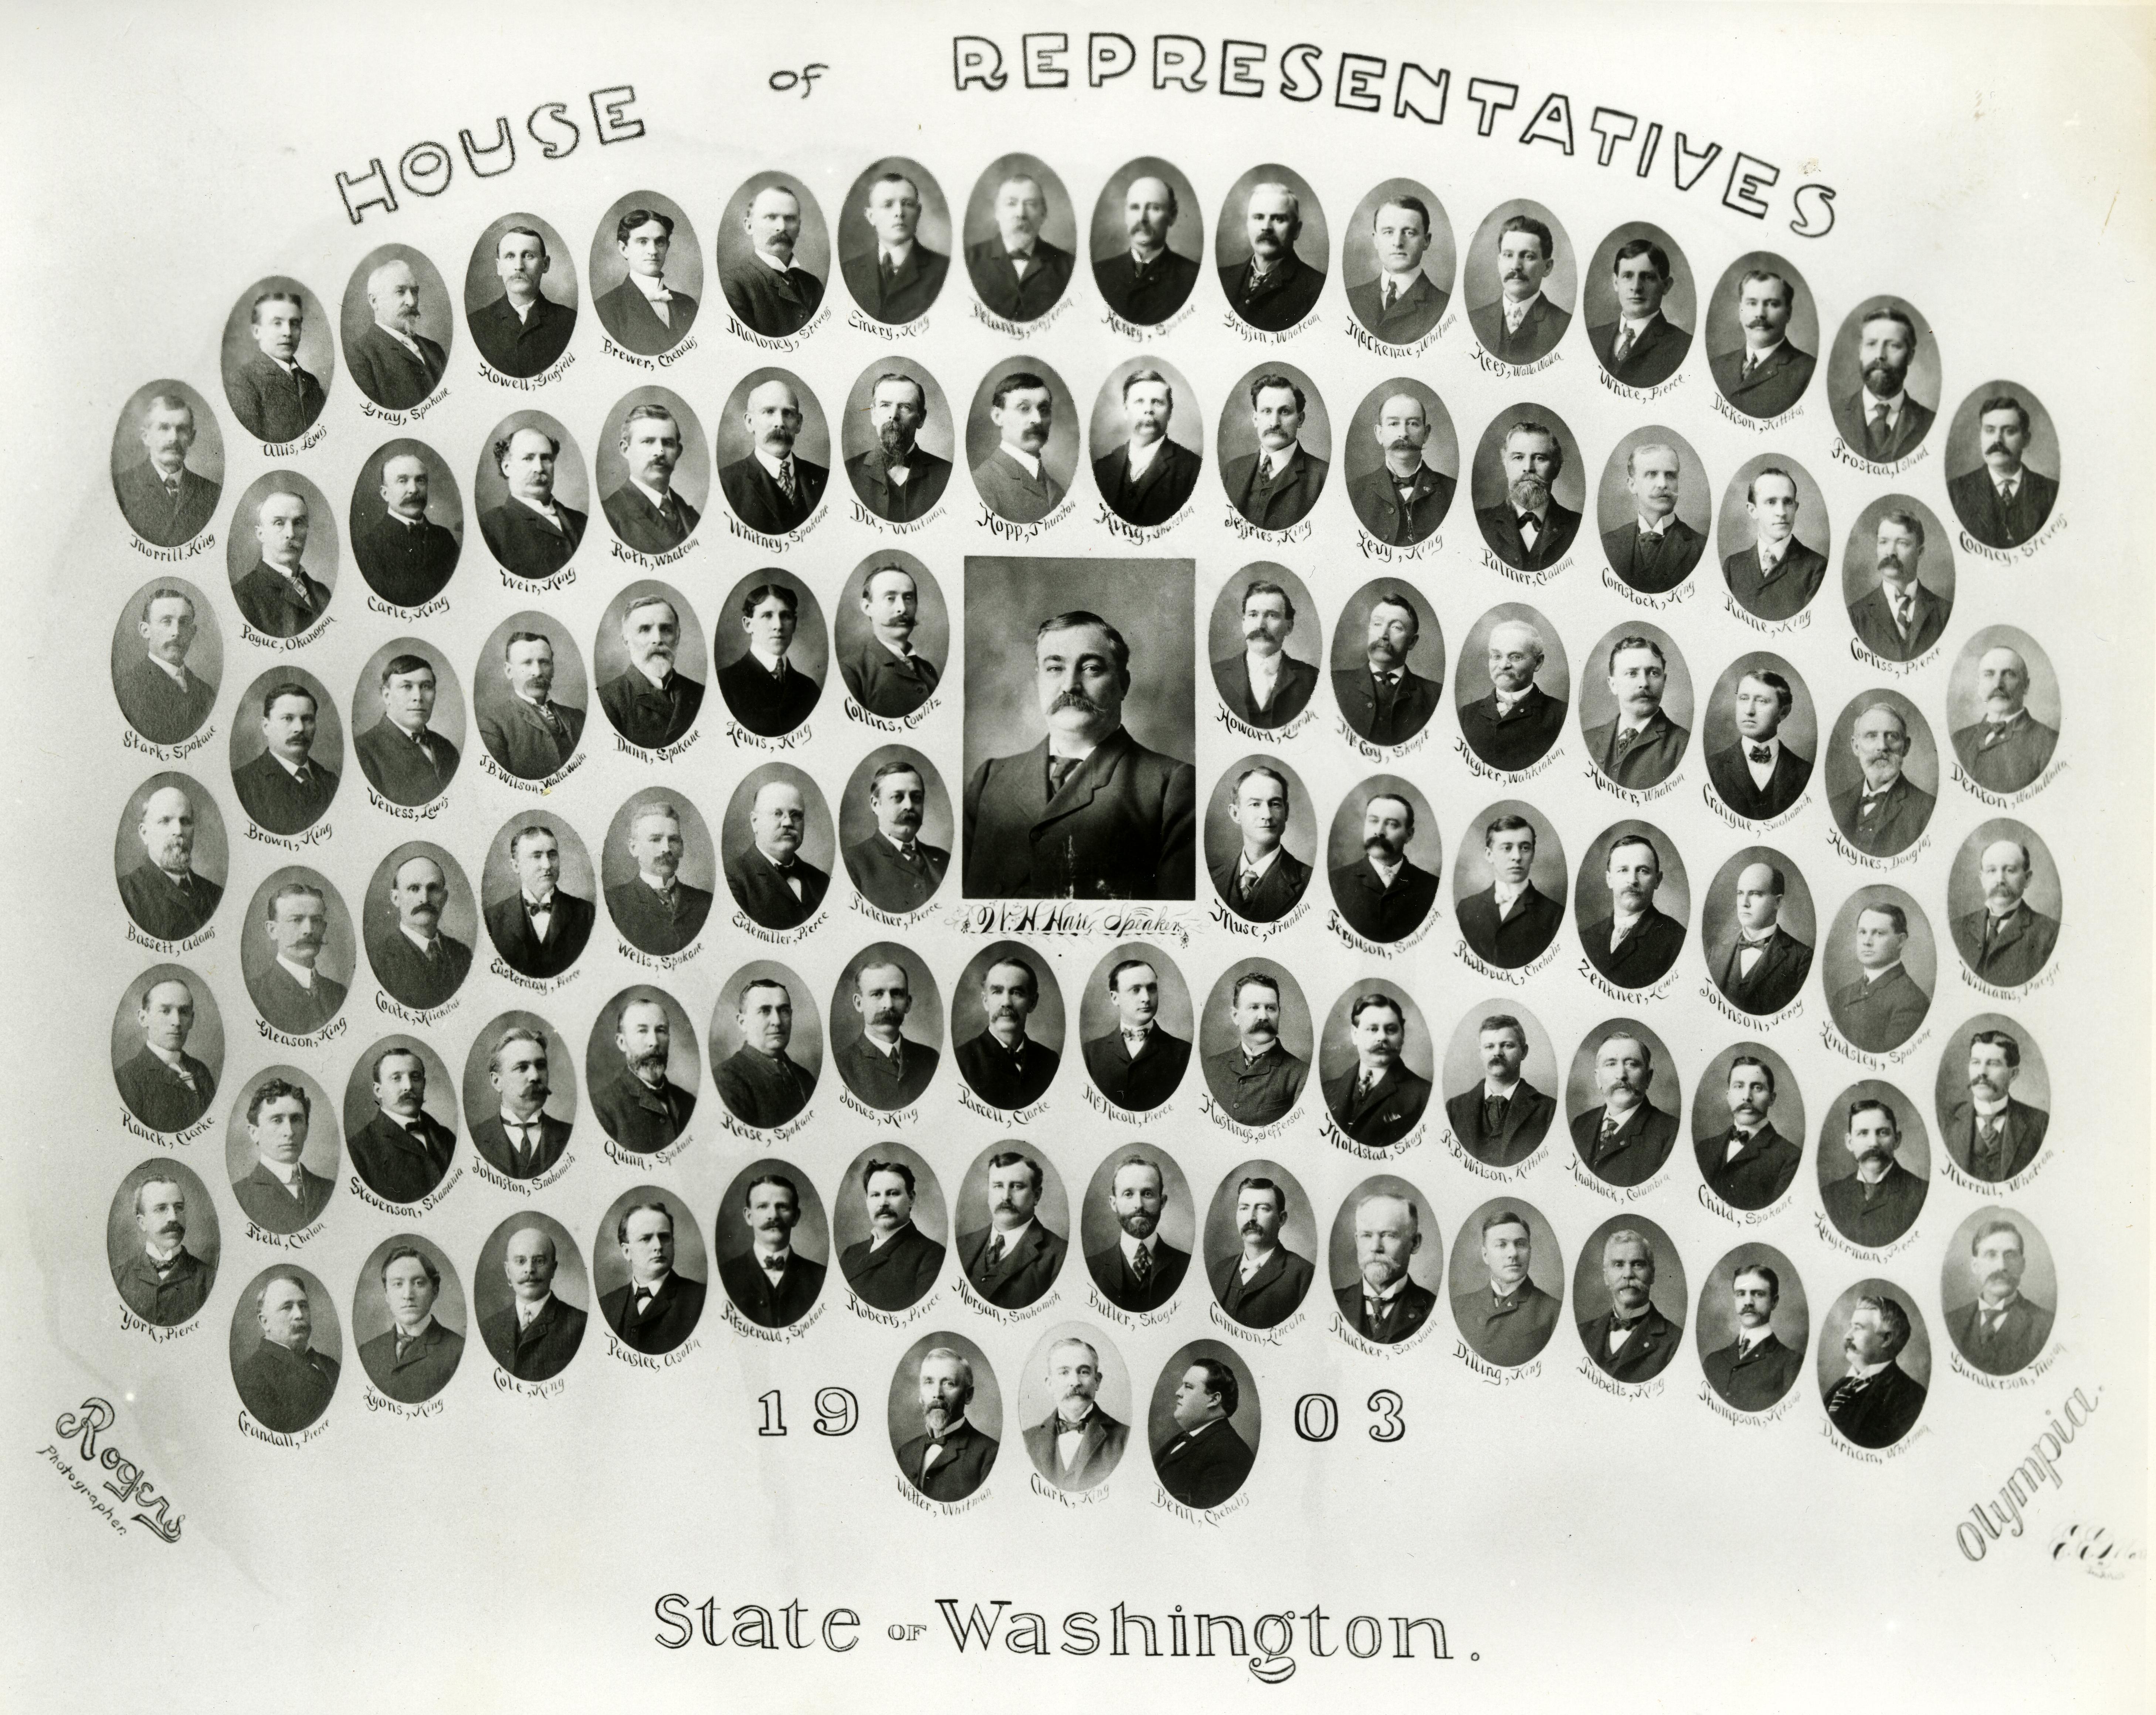 HOUSE of REPRESENTATIVES
Morrill, King
Allis, Lewis
Gray, Spokane
Howell, Garfield
Brewer, Chehalis
Maloney, Stevens
Emery, King
Delanty, Jefferson
Henry, Spokane
Griffin, Whatcom
Mackenzie, Whitman
Kees, Walla Walla
White, Pierce.
Dickson, Kittitas
Frostad, Island
Cooney, Stevens
Stark, Spokane
Pogue, Okanogan
Carle, King
Weir, King
Roth, Whatcom
Whitney, Spokane
Dix, Whitman
Hopp, Thurston
King, Thurston
Jeffries, King
Levy, King
Palmer, Clallam
Comstock, King
Raine, King
Corliss, Pierce
Denton, Walla Walla
Bassett, Adams
Brown, King
Veness, Lewis
J.B. Wilson, Walla Walla
Dunn, Spokane
Lewis, King
Collins, Cowlitz
W. H. Hare, Speaker
Howard, Lincoln
McCoy, Skagit
Megler, Wahkiakum
Hunter, Whatcom
Craigue, Snohomish
Haynes, Douglas
Williams, Pacific
Ranck, Clarke
Gleason, King
Coate, Klickitat
Easterday, Pierce
Wells, Spokane
Eidemiller, Pierce
Fletcher, Pierce
Muse, Franklin
Ferguson, Snohomish
Philbrick, Chehalis
Zenkner, Lewis
Johnson, Ferry
Lindsley, Spokane
Merrill, Whatcom
York, Pierce
Field, Chelan
Stevenson, Skamania
Johnston, Snohomish
Quinn, Spokane
Reise, Spokane
Jones, King
Parcell, Clarke
McNicoll, Pierce
Hastings, Jefferson
Moldstad, Skagit
R.B. Wilson, Kittitas
Knoblock, Columbia
Child, Spokane
Lingerman, Pierce
Gunderson, Mason
Crandall, Pierce
Lyons, King
Cole, King
Peaslee, Asotin
Fitzgerald, Spokane
Roberts, Pierce
Morgan, Snohomish
Butler, Skagit
Cameron, Lincoln
Thacker, San Juan
Dilling, King
Tibbetts, King
Thompson, Kitsap
Durham, Whitman
1903
Witter, Whitman
Clark, King
Benn, Chehalis
Rogers
Photographer
Olympia.
State OF Washington.